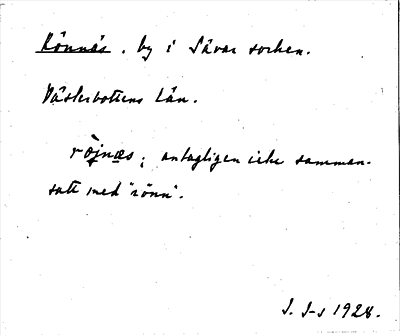 Rönnäs. by i Sävar socken.
Västerbottens Län.
röjnæs; antagligen icke samman-
satt med "rönn".
J. J-s 1928.